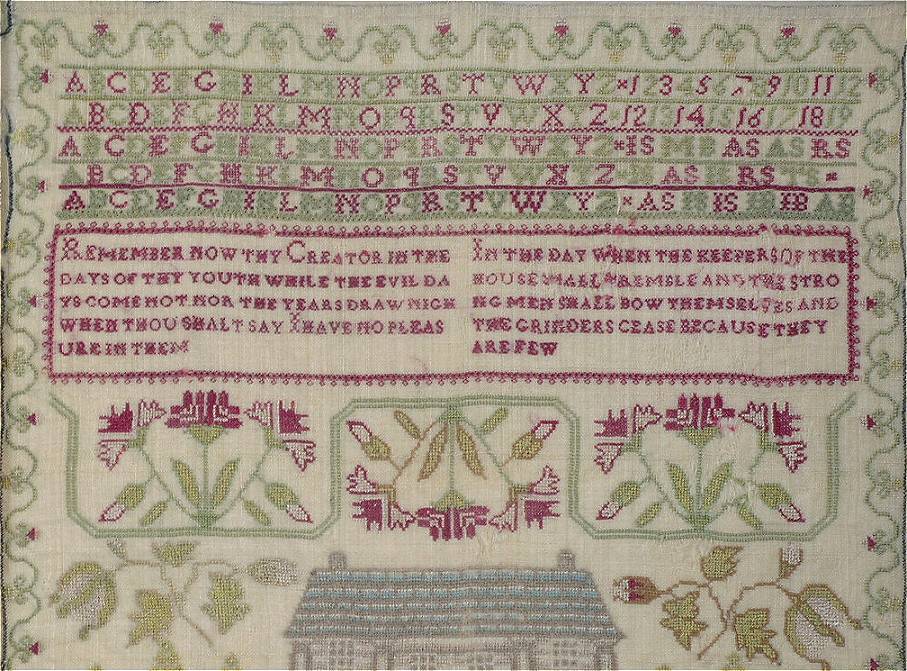 A B C D E F G H I K L M N O P Q R S T V W X Y Z * 1 2 3 4 5 6 7 8 9 10 11 12
A B C D E F G H I K L M N O P q R S T V W X Y Z 12 13 14 15 16 17 18 19
A B C D E F G H I K L M N O P Q R S T V W X Y Z * IS AS AS RS
A B C D E F G H I K L M N O P q R S T V W X Y Z AS RS TS *
A B C D E F G H I K L M N O P Q R S T V W X Y Z * AS IS IB AB
REMEMBER NOW THY CREATOR IN THE
DAYS OF THY YOUTH WHILE THE EVIL DA
YS COME NOT NOR THE YEARS DRAW NIGH
WHEN THOU SHALT SAY I HAVE NO PLEAS
URE IN THEM
IN THE DAY WHEN THE KEEPERS OF THE
HOUSE SHALL TREMBLE AND THE STRO
NG MEN SHALL BOW THEMSELVES AND
THE GRINDERS CEASE BECAUSE THEY
ARE FEW